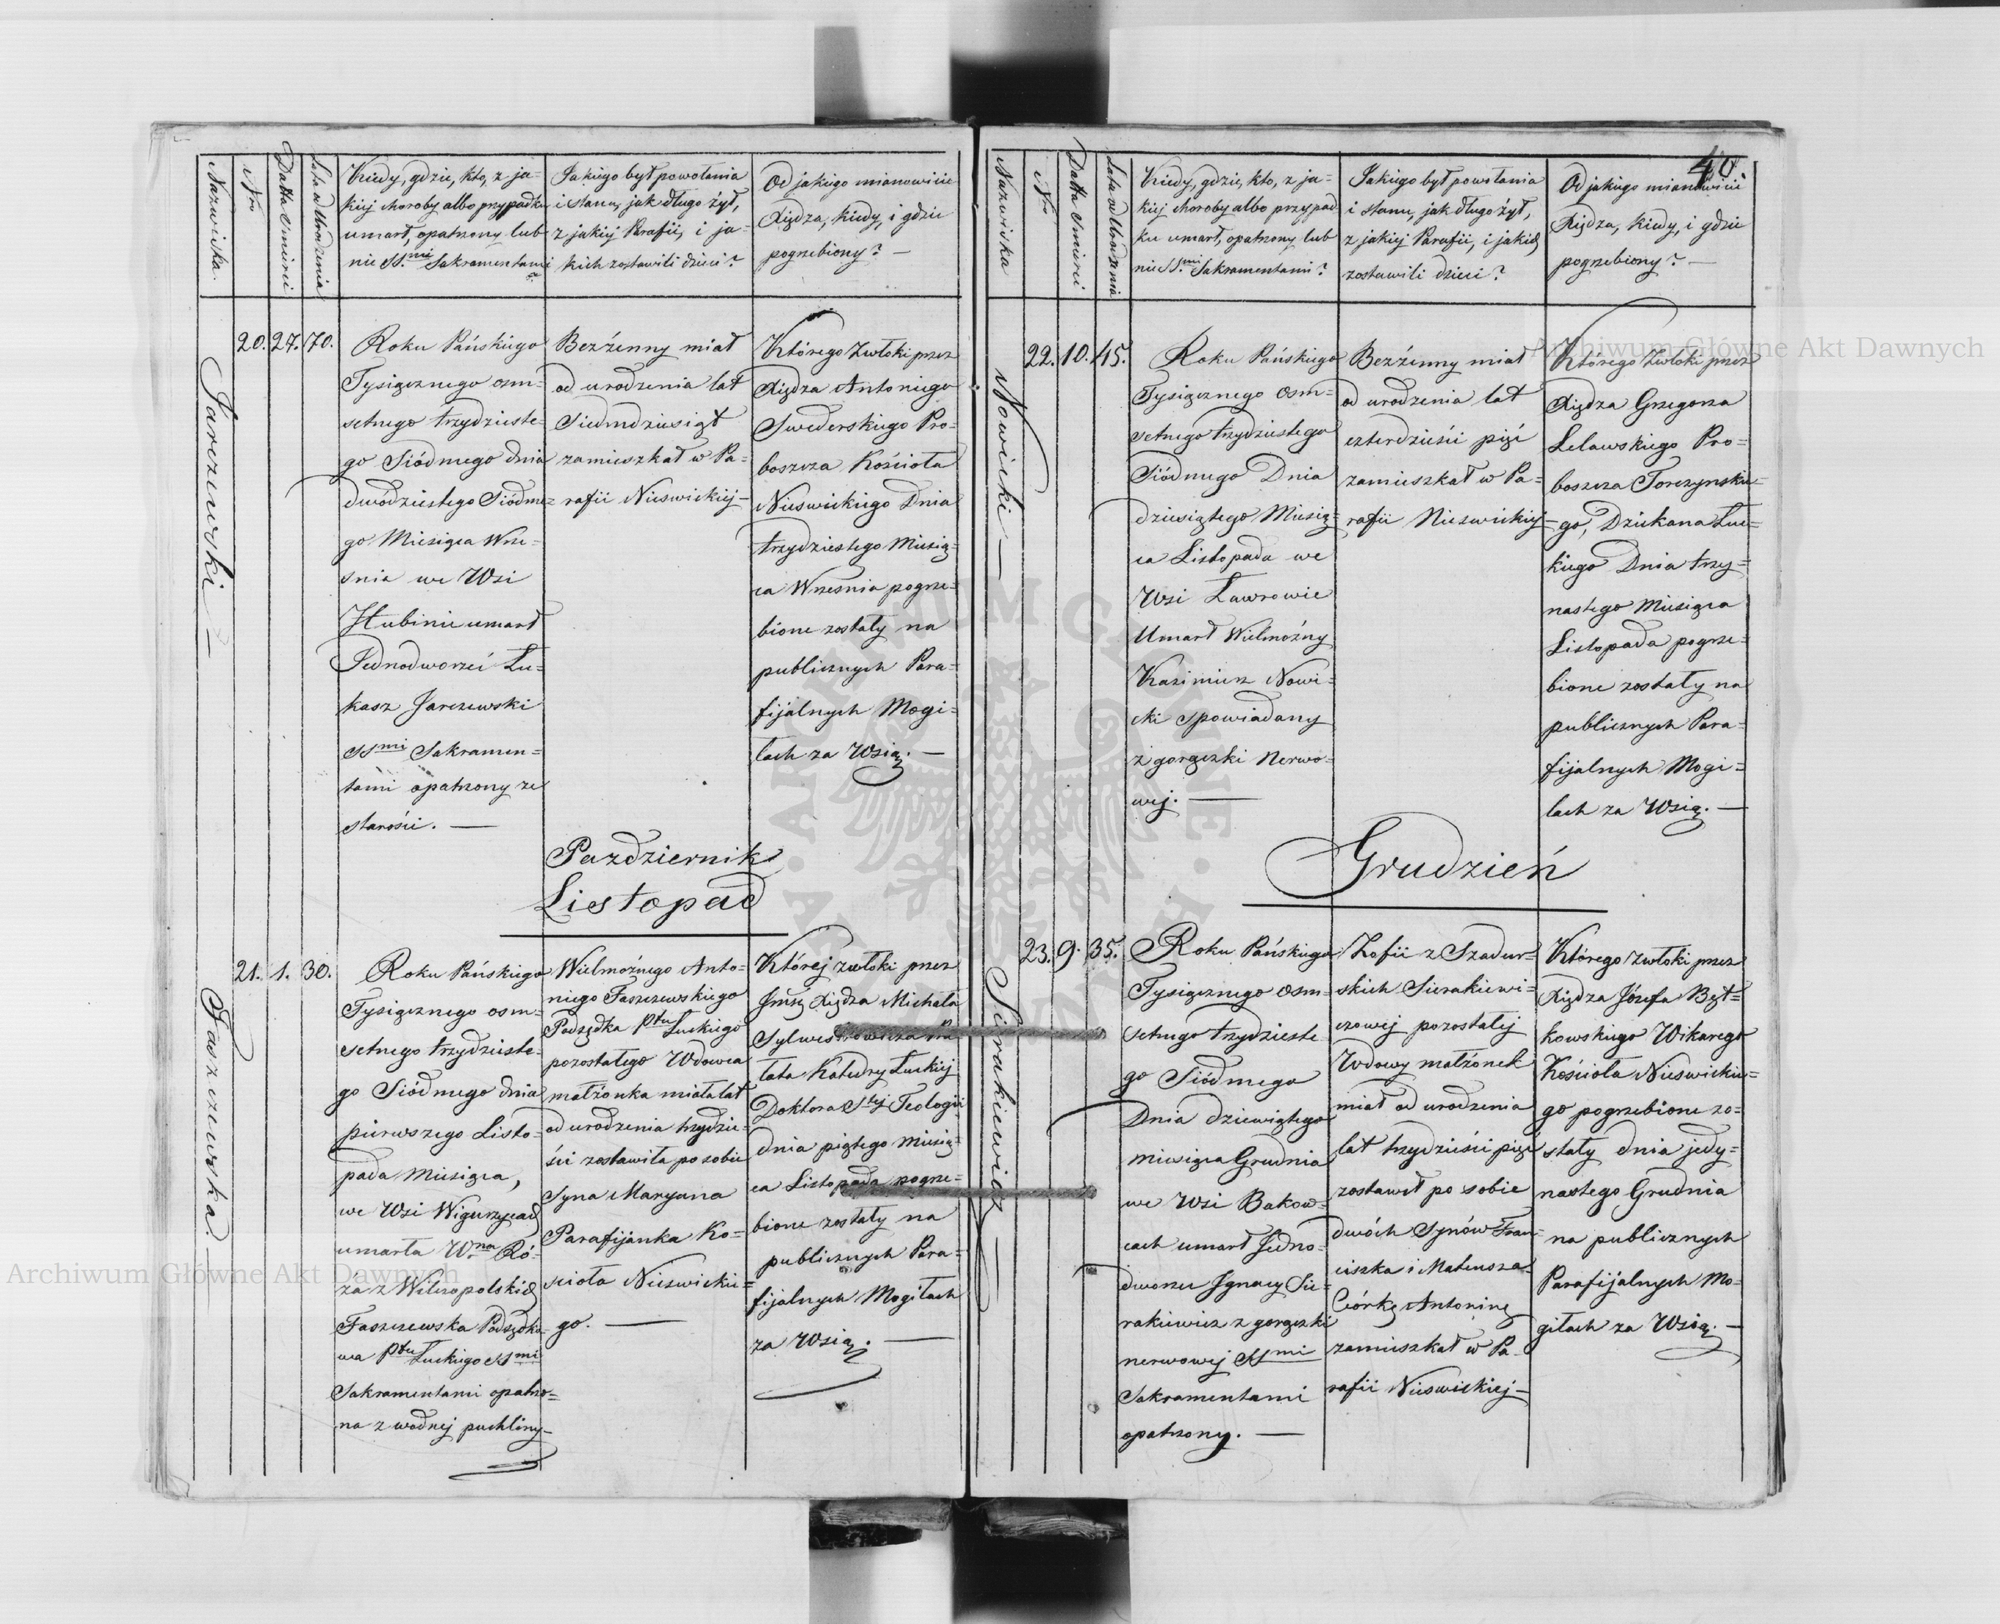 Nazwiska.
Nro
Datta Śmierci
Lata od Urodzenia
Kiedy, gdzie, kto, z ja=
kiej choroby albo przypadku
umarł, opatrzony lub
nie SS.mi Sakramentami
?
Jakiego był powołania
i stanu, jak długo żył,
z jakiej Parafii, i ja=
kich zostawili dzieci?
Od jakiego mianowicie
Xiędza, kiedy, i gdzie
pogrzebiony? —
Jarczewski —
20.
27.
70.
Roku Pańskiego
Tysiącznego osm=
setnego trzydzieste=
go Siódmego dnia
dwódziestego Siódme=
go Miesiąca Wrze=
śnia we Wsi
Hłubinie umarł
Jednodworzec Łu=
kasz Jarczewski
SSmi Sakramen=
tami opatrzony ze
starości. —
Bezżenny miał
od urodzenia lat
Siedmdziesiąt
zamieszkał w Pa=
rafii Nieswickiej—
Którego Zwłoki przez
Xiędza Antoniego
Swederskiego Pro=
boszcza Kościoła
Nieswickiego Dnia
trzydziestego Miesią=
ca Września pogrze=
bione zostały na
publicznych Para=
fijalnych Mogi=
łach za Wsią. —
Pazdziernik
Listopad
Faszczewska. —
21.
1.
30.
Roku Pańskiego
Tysiącznego osm=
setnego trzydzieste=
go Siódmego dnia
pierwszego Listo=
pada Miesiąca,
we Wsi
umarła Wna Ró=
ża z Wilczopolskich
Faszczewska Podsędko=
wa Ptu Łuckiego SSmi
Sakramentami opatrzo=
na z wodnej puchliny—
Wielmożnego Anto=
niego Faszczewskiego
Podsędka Ptu Łuckiego
pozostałego Wdowca
małżonka miała lat
od urodzenia trzydzie=
ści zostawiła po sobie
Syna Maryana
Parafijanka Ko=
ścioła Nieswickie=
go. —
Której zwłoki przez
Jmść Xiędza Michała
Sylwestrowicza Pra
łata Katedry Łuckiej
Doktora Stej Teologii
dnia piątego Miesią=
ca Listopada pogrze=
bione zostały na
publicznych Para=
fijalnych Mogiłach
za Wsią. —
40
Nazwiska
Nro
Datta Śmierci
Lata od Urodzenia
Kiedy, gdzie, kto, z ja=
kiej choroby albo przypad
ku umarł, opatrzony lub
nie SS.mi Sakramentami?
Jakiego był powołania
i stanu, jak długo żył,
z jakiej Parafii, i jakich
zostawili dzieci?
Od jakiego mianowicie
Xiędza, kiedy, i gdzie
pogrzebiony? —
Nowicki —
22.
10.
45.
Roku Pańskiego
Tysiącznego osm=
setnego trzydziestego
Siódmego Dnia
dziesiątego Miesią=
ca Listopada we
Wsi Ławrowie
Umarł Wielmożny
Kazimierz Nowi=
cki spowiadany
z gorączki Nerwo=
wej. —
Bezżenny miał
od urodzenia lat
czterdzieści pięć
zamieszkał w Pa=
rafii Nieswickiej—
Którego Zwłoki przez
Xiędza Grzegorza
Lelawskiego Pro=
boszcza Torczynskie=
go, Dziekana Łuc=
kiego Dnia trzy=
nastego Miesiąca
Listopada pogrze=
bione zostały na
publicznych Para=
fijalnych Mogi=
łach za Wsią. —
Grudzień
Sierakiewicz —
23.
9.
35.
Roku Pańskiego
Tysiącznego Osm=
setnego trzydzieste
go Siódmego
Dnia dziewiątego
miesiąca Grudnia
we Wsi Bakow=
cach umarł Jedno=
dworzec Ignacy Sie=
rakiewicz z gorączki
nerwowej SSmi
Sakramentami
opatrzony. —
Zofii z Szadur=
skich Sierakiewi=
czowej pozostałej
Wdowy małżonek
miał od urodzenia
lat trzydzieści pięć
zostawił po sobie
dwóch Synów Fran=
ciszka i Mateusza=
Córkę Antoninę
zamieszkał w Pa=
rafii Nieswickiej—
Którego zwłoki przez
Xiędza Józefa Bąt=
kowskiego Wikarego
Kościoła Nieswickie=
go pogrzebione zo=
stały dnia jedy=
nastego Grudnia
na publicznych
Parafijalnych Mo=
giłach za Wsią. —
Archiwum Główne Akt Dawnych
Archiwum Główne Akt Dawnych